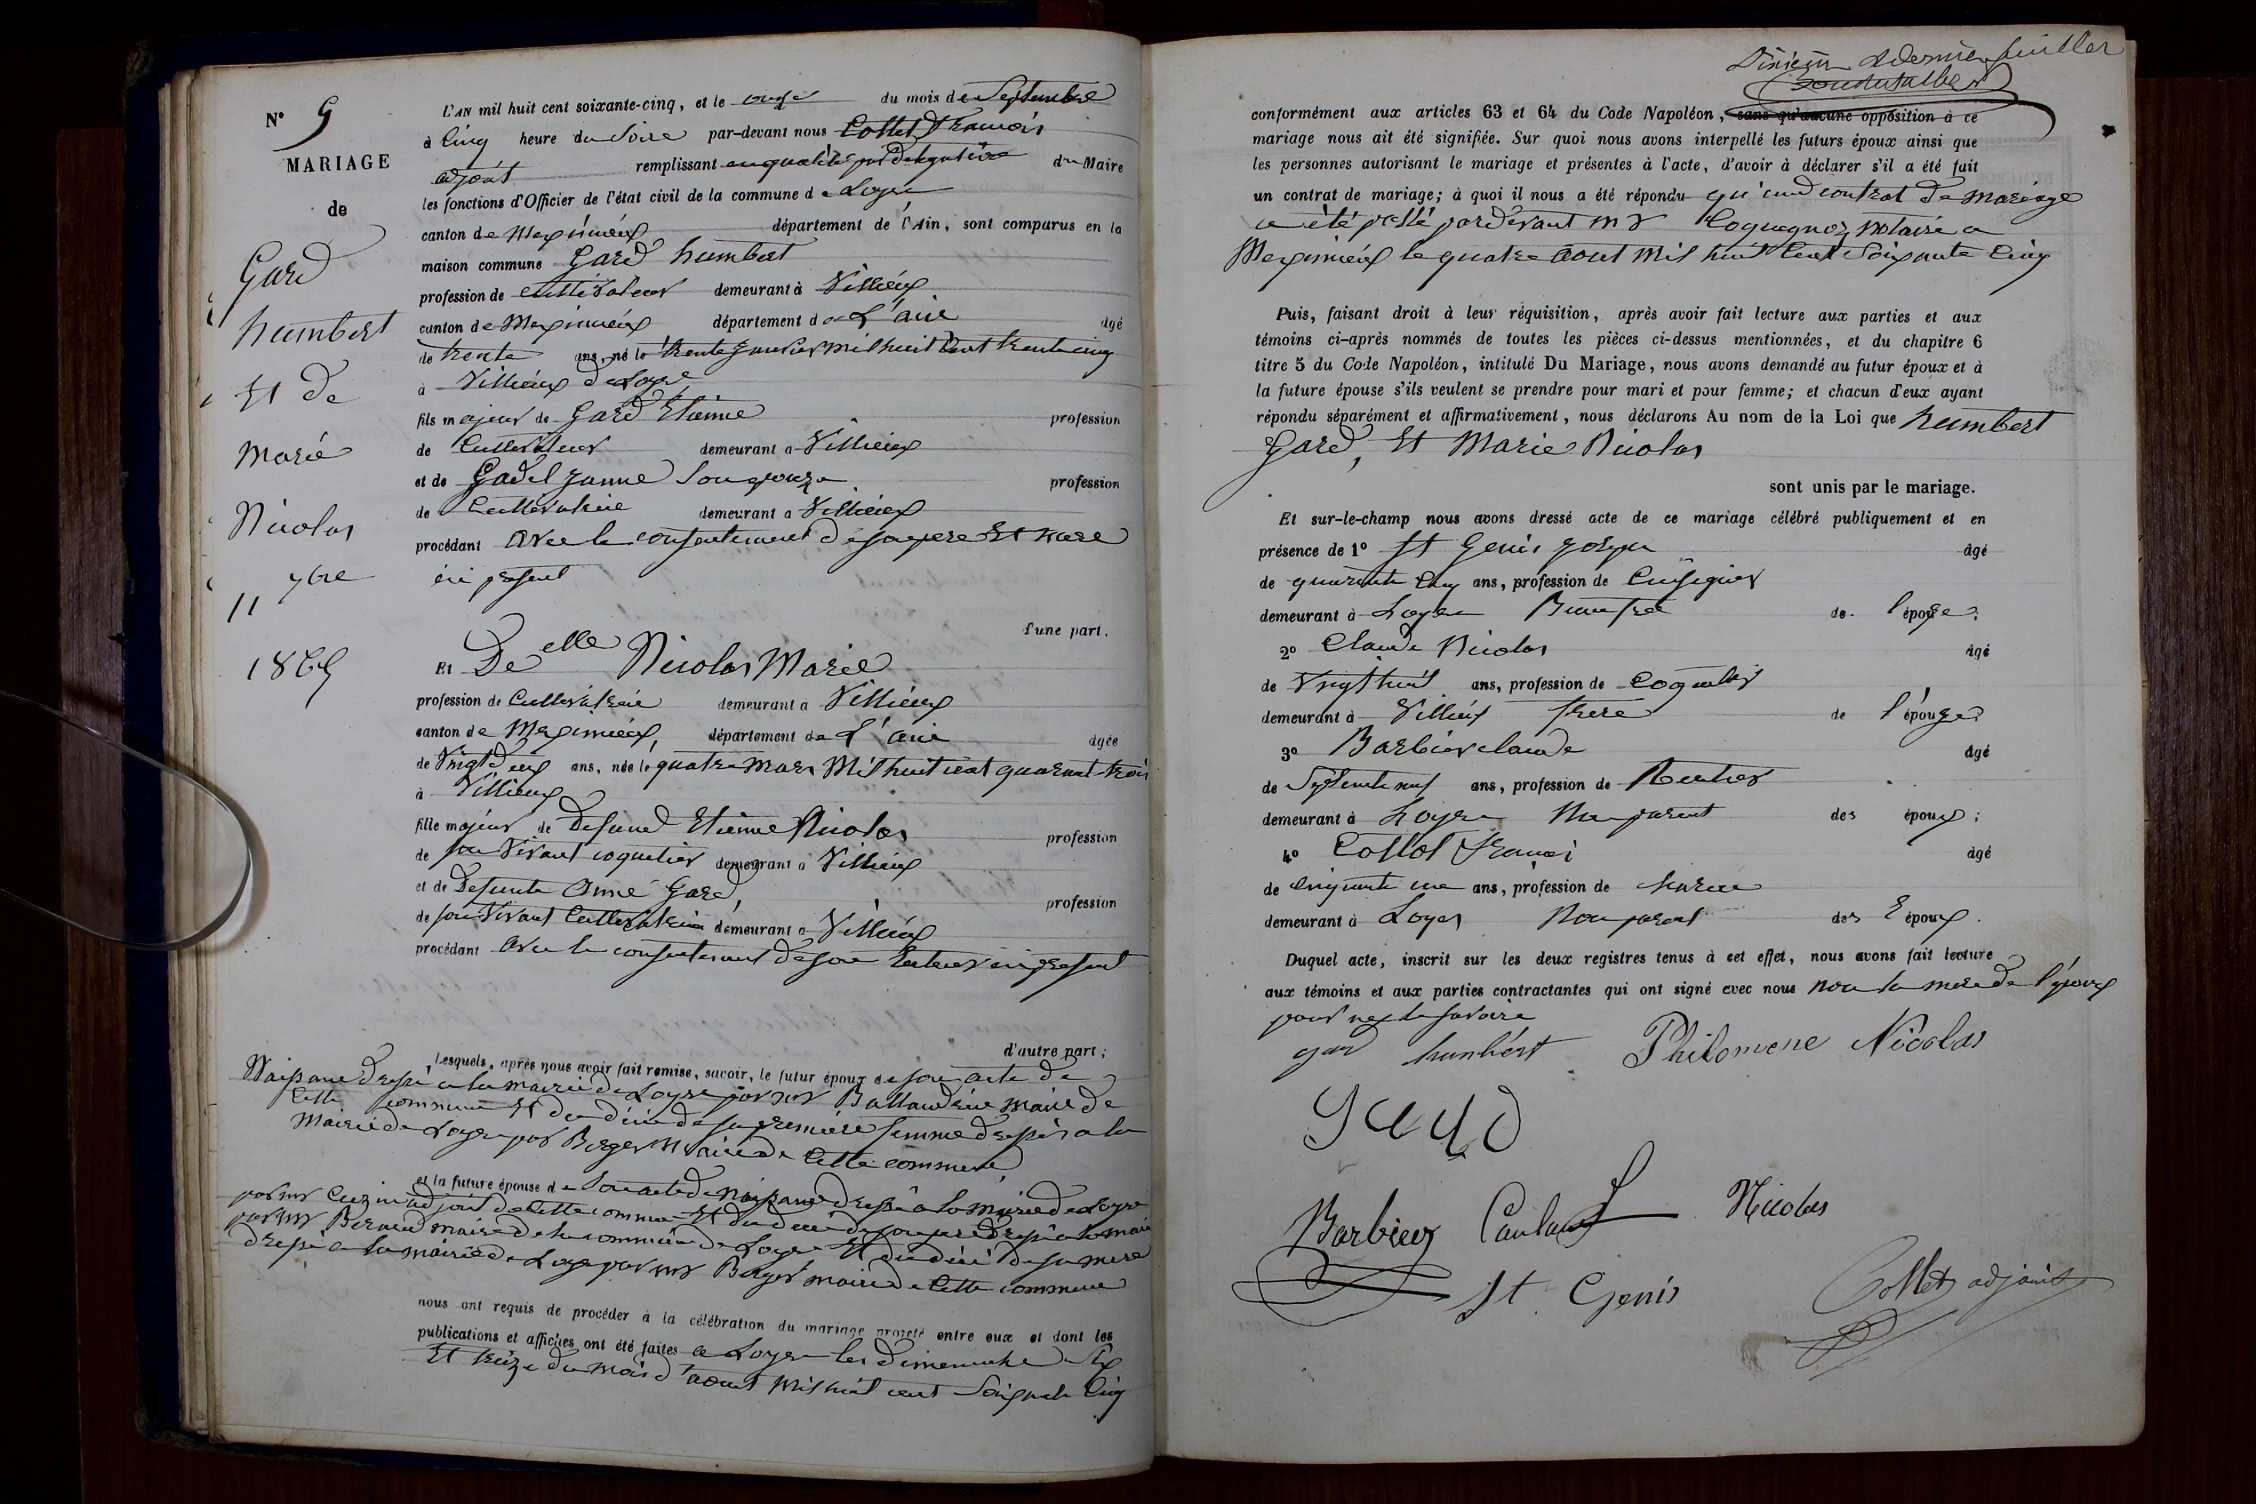 N° 9
MARIAGE
de
Gard
humbert
Et de
Marie
Nicolas
11 7bre
1865
L'AN mil huit cent soixante-cinq, et le onze du mois de Septembre
à Cinq heure du Soire par-devant nous Collet François
adjoint remplissant en qualité par délégation du Maire
les fonctions d'Officier de l'état civil de la commune de Loyes
canton de Meximieux département de l'Ain, sont comparus en la
maison commune Gard humbert
profession de cultivateur demeurant à Villieux
canton de Meximieux département de L'ain âgé
de trente ans, né le trente janvier mil huit Cent trente cinq
à Villieux de Loyes
fils majeur de Gard Etienne profession
de Cultivateur demeurant a Villieux
et de Gadel Janne Son epouze profession
de Cultivatrice demeurant a Villieux
procédant avec le consentement de son pere Et mere
ici present
d'une part.
Et Delle Nicolas Marie
profession de Cultivatrice demeurant à Villieux
canton de Meximieux, département de L'ain âgée
de Vingt Deux ans, née le quatre Mars Mil huit cent quarant-trois
à Villieux
fille majeur de Defunt Etienne Nicolas profession
de son Vivant coquetier demeurant à Villieux
et de Defunte Anne Gard, profession
de son Vivant Cultivatrice demeurant a Villieux
procédant avec le consentement de son tuteur ici present
d'autre part;
Lesquels, après nous avoir fait remise, savoir, le futur époux de son acte de
Naissance Dressé a la mairie de Loyes par mr Ballandrin maire de
Cette commune Et du décé de sa première femme dressés a la
Mairie de Loyes par Berger Maire de Cette commune
et la future épouse de Son acte de Naissance dressé à la mairie de Loyes
par mr Cuzin adjoint de Cette commune Et du décé de son pere dressé a la mairie
par mr Bernard maire de la commune de Loyes Et du décé de sa mere
dressé a la mairie de Loyes par mr Berger maire de Cette commune
nous ont requis de procéder à la célébration du mariage projeté entre eux et dont les
publications et affiches ont été faites a Loyes les Dimenuche Six
Et treize du mois d'aout Mil huit cent Soixante Cinq
dernier feuillet
conformément aux articles 63 et 64 du Code Napoléon, sans qu'aucune opposition à ce
mariage nous ait été signifiée. Sur quoi nous avons interpellé les futurs époux ainsi que
les personnes autorisant le mariage et présentes à l'acte, d'avoir à déclarer s'il a été fait
un contrat de mariage; à quoi il nous a été répondu qu'un contrat de mariage
a été passé pardevant mr Coquagnoz notaire a
Meximieux le quatre aout mil huit Cent Soixante Cinq
Puis, faisant droit à leur réquisition, après avoir fait lecture aux parties et aux
témoins ci-après nommés de toutes les pièces ci-dessus mentionnées, et du chapitre 6
titre 5 du Code Napoléon, intitulé Du Mariage, nous avons demandé au futur époux et à
la future épouse s'ils veulent se prendre pour mari et pour femme; et chacun d'eux ayant
répondu séparément et affirmativement, nous déclarons Au nom de la Loi que humbert
Gard, Et Marie Nicolas
sont unis par le mariage.
Et sur-le-champ nous avons dressé acte de ce mariage célébré publiquement et en
présence de 1° St Genis Joseph âgé
de quarante Cinq ans, profession de
demeurant à Loyes Beau frere de l'épouze;
2° Claude Nicolas âgé
de Vingt huit ans, profession de Coquetier
demeurant à Villieux frere de l'épouze
3° Barbier claude âgé
de Septente neuf ans, profession de Rentier
demeurant à Loyes Non parent des époux;
4° Collet François âgé
de cinquante un ans, profession de
demeurant à Loyes Non parent des Epoux.
Duquel acte, inscrit sur les deux registres tenus à cet effet, nous avons fait lecture
aux témoins et aux parties contractantes qui ont signé avec nous Non la mere de l'époux
pour ne le savoire
gard humbért Philomene Nicolas
gard
Barbier Nicolas
St Genis Collet adjoint